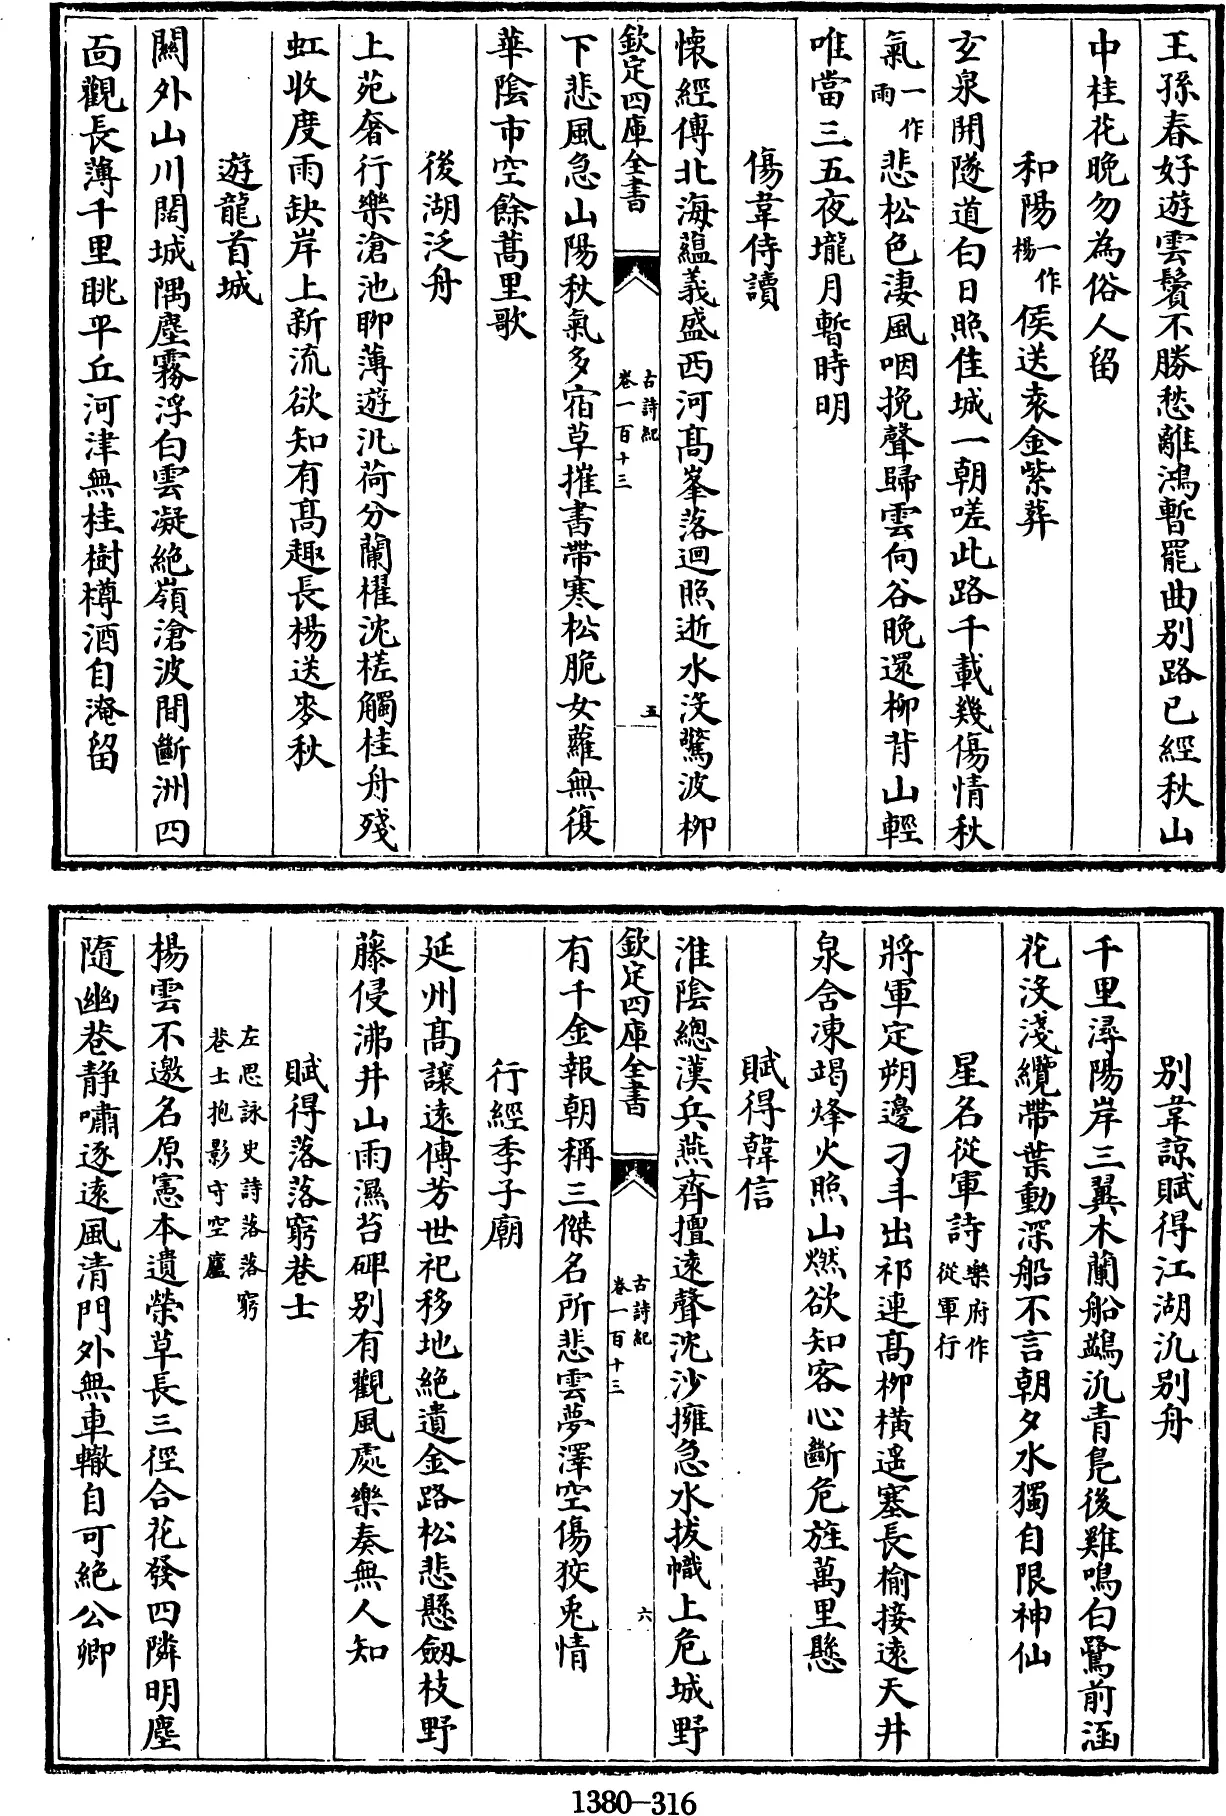 王孫春好遊雲鬢不勝愁離鴻暫罷曲别路已經秋山
中桂花晚勿為俗人留
和陽一作楊侯送袁金紫葬
玄泉開隧道白日照佳城一朝嗟此路千載幾傷情秋
氣一作雨悲松色淒風咽挽聲歸雲向谷晚還柳背山輕
唯當三五夜壠月暫時明
傷韋侍讀
懷經傳北海蘊義盛西河髙峯落迴照逝水沒驚波柳
欽定四庫全書
古詩紀
卷一百十三
五
下悲風急山陽秋氣多宿草摧書帶寒松脆女蘿無復
華陰市空餘蒿里歌
後湖泛舟
上苑奢行樂滄池聊薄遊汎荷分蘭櫂沈槎觸桂舟殘
虹收度雨缺岸上新流欲知有髙趣長楊送麥秋
遊龍首城
闗外山川闊城隅塵霧浮白雲凝絶嶺滄波間斷洲四
面觀長薄千里眺平丘河津無桂樹樽酒自淹留
别韋諒賦得江湖汎别舟
千里潯陽岸三翼木蘭船鷁汎青鳬後雞鳴白鷺前涵
花沒淺纜帶葉動深船不言朝夕水獨自限神仙
星名從軍詩樂府作從軍行
將軍定朔邊刁斗出祁連髙柳橫遥塞長榆接逺天井
泉含凍竭烽火照山燃欲知客心斷危旌萬里懸
賦得韓信
淮陰總漢兵燕齊擅逺聲沈沙擁急水拔幟上危城野
欽定四庫全書
古詩紀
卷一百十三
六
有千金報朝稱三傑名所悲雲夢澤空傷狡兎情
行經季子廟
延州髙讓逺傳芳世祀移地絶遺金路松悲懸劒枝野
藤侵沸井山雨濕苔碑别有觀風處樂奏無人知
賦得落落窮巷士
左思詠史詩落落窮
巷士抱影守空廬
楊雲不邀名原憲本遺榮草長三徑合花發四隣明塵
隨幽巷静嘯逐逺風清門外無車轍自可絶公卿
1380-316